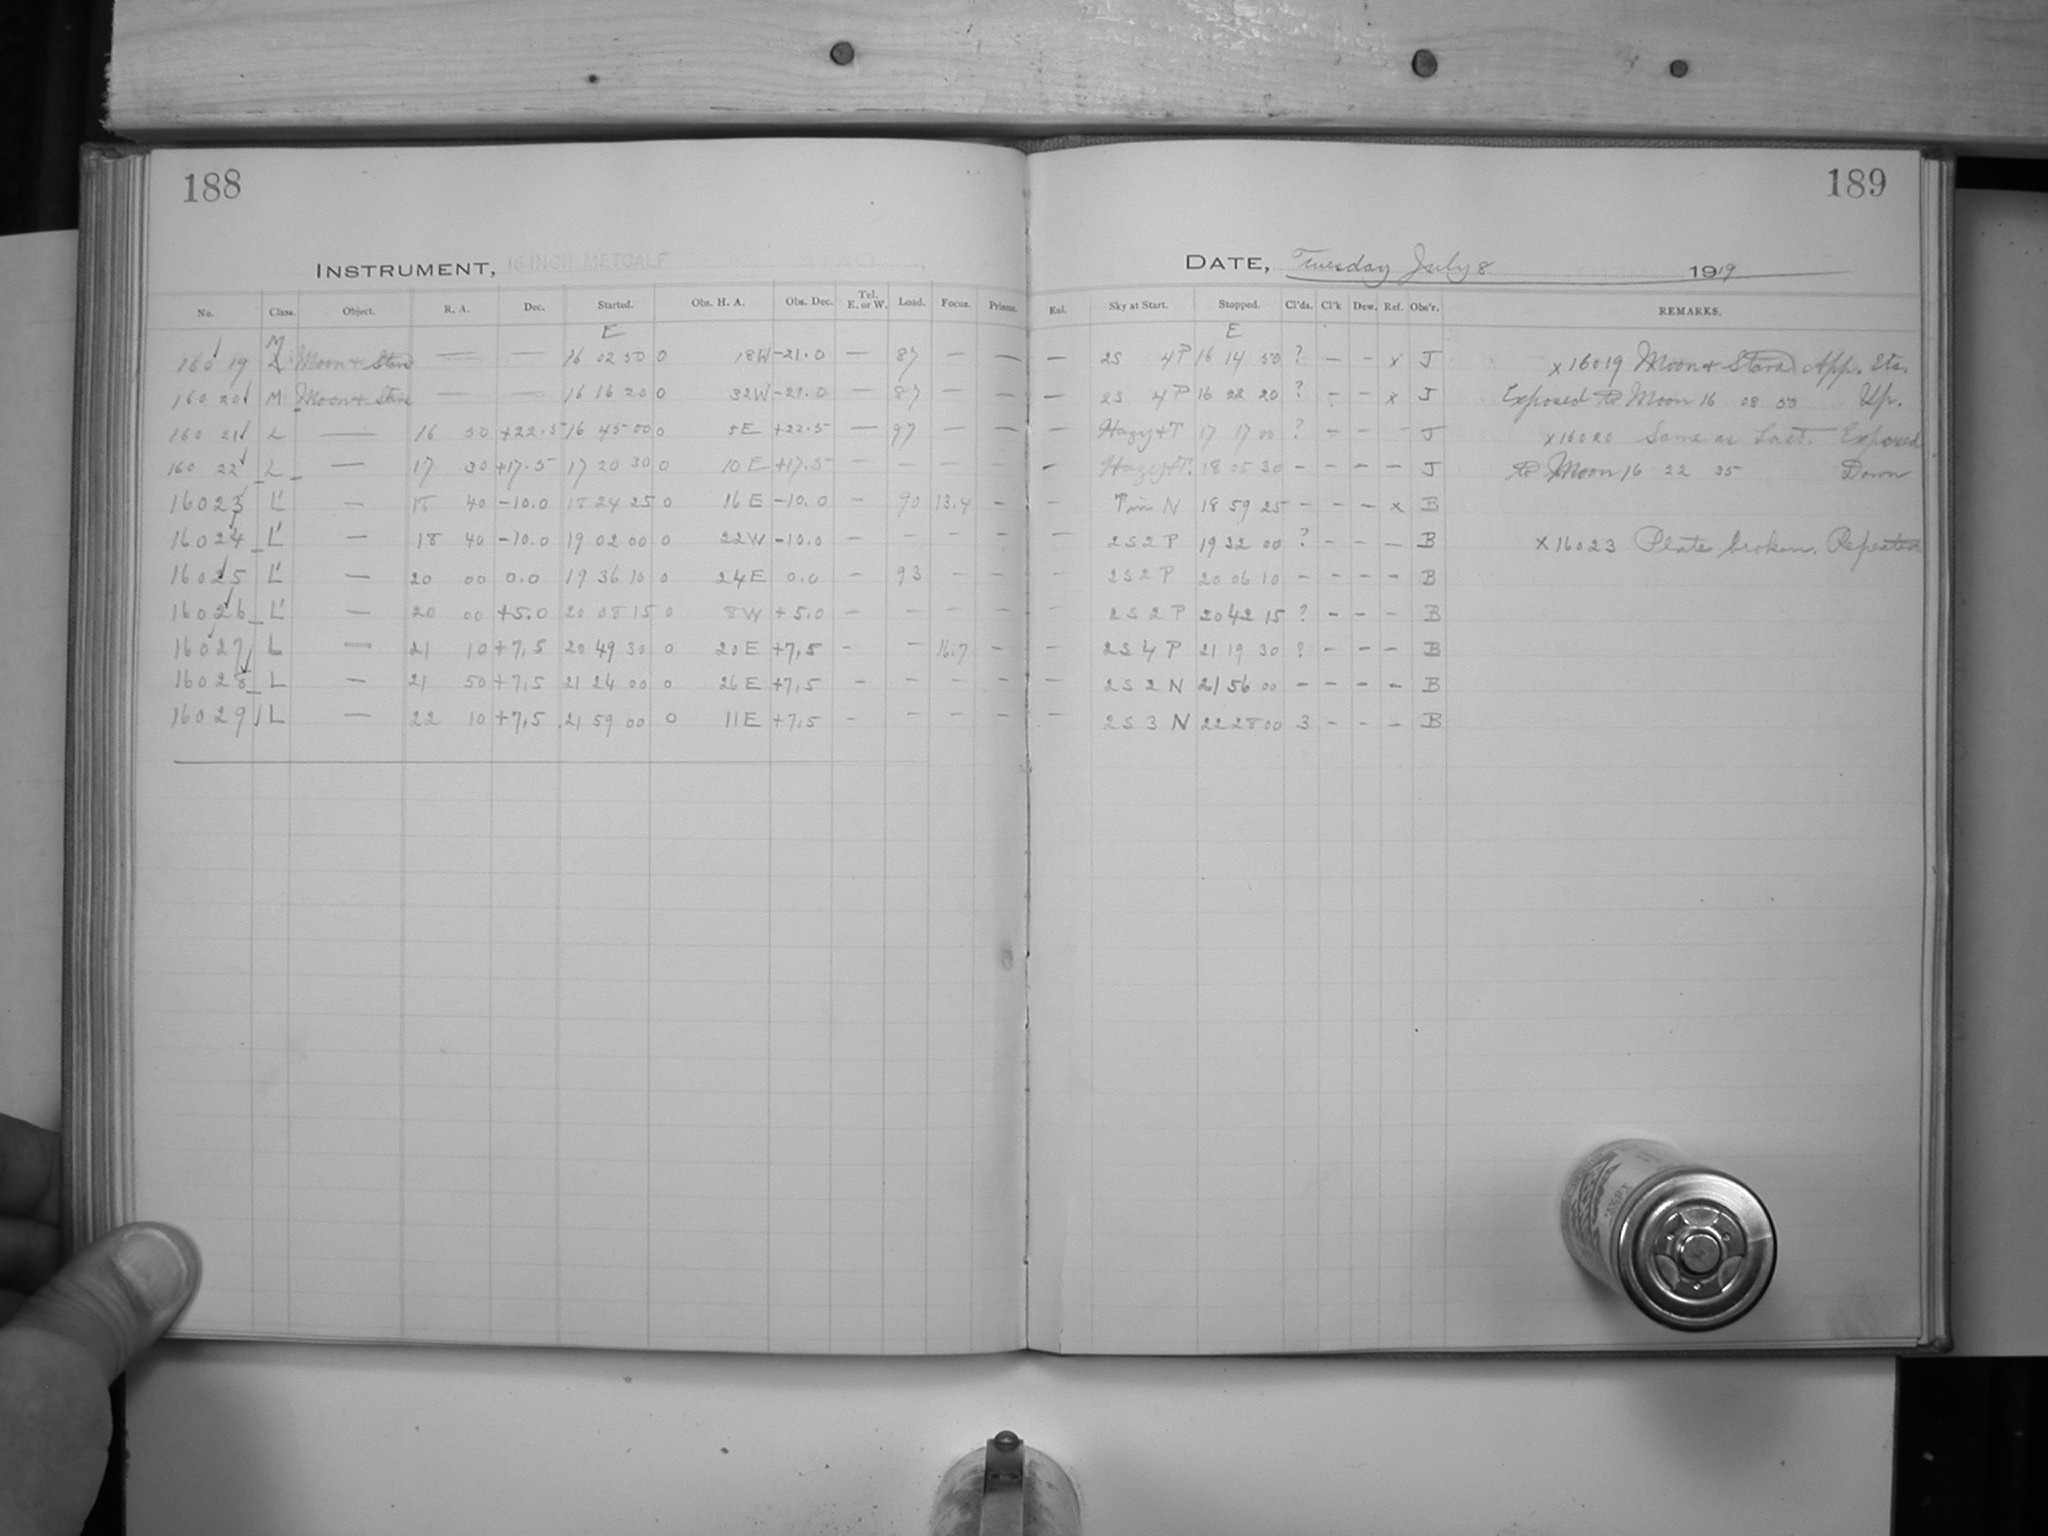 188
189
INSTRUMENT, 16-INCH METCALF
DATE, Tuesday July 8 1919
No. Class. Object. R. A. Dec. Started. Obs. H. A. Obs. Dec. Tel. E. or W. Load. Focus. Prisms. Eul. Sky at Start. Stopped. Cl'ds. Cl'k Dew. Ref. Obs'r. REMARKS.
M E E
16019 L Moon + Stars — — 16 02 50 0 18W -21.0 — 87 — — — 2S 4P 16 14 50 ? — - x J x16019 Moon + Stars App. Sta.
16020 M Moon + Stars — — 16 16 20 0 32W -21.0 — 87 — — — 2S 4P 16 22 20 ? - - x J Exposed to Moon 16 08 50 Up.
16021 L — 16 50 +22.5 16 45 00 0 5E +22.5 — 97 — — — Hazy+T 17 17 00 ? - - - J x16020 Same as Last. Exposed
16022 L — 17 30 +17.5 17 20 30 0 10E +17.5 — — — — - Hazy+T. 18 05 30 - - - - J to Moon 16 22 35 Down
16023 L' — 18 40 -10.0 18 24 25 0 16E -10.0 - 90 13.4 — - T in N 18 59 25 - - - x B
16024 L' — 18 40 -10.0 19 02 00 0 22W -10.0 - - - - - 2S2P 19 32 00 ? - - - B x16023 Plate broken. Repeated
16025 L' — 20 00 0.0 19 36 10 0 24E 0.0 - 93 - - - 2S2P 20 06 10 - - - - B
16026 L' — 20 00 +5.0 20 08 15 0 8W +5.0 - - - - - 2S2P 20 42 15 ? - - - B
16027 L — 21 10 +7.5 20 49 30 0 20E +7.5 - - 16.7 - - 2S4P 21 19 30 ? - - - B
16028 L — 21 50 +7.5 21 24 00 0 26E +7.5 - - - - - 2S2N 21 56 00 - - - - B
16029 L — 22 10 +7.5 21 59 00 0 11E +7.5 - - - - - 2S3N 22 28 00 3 - - - B